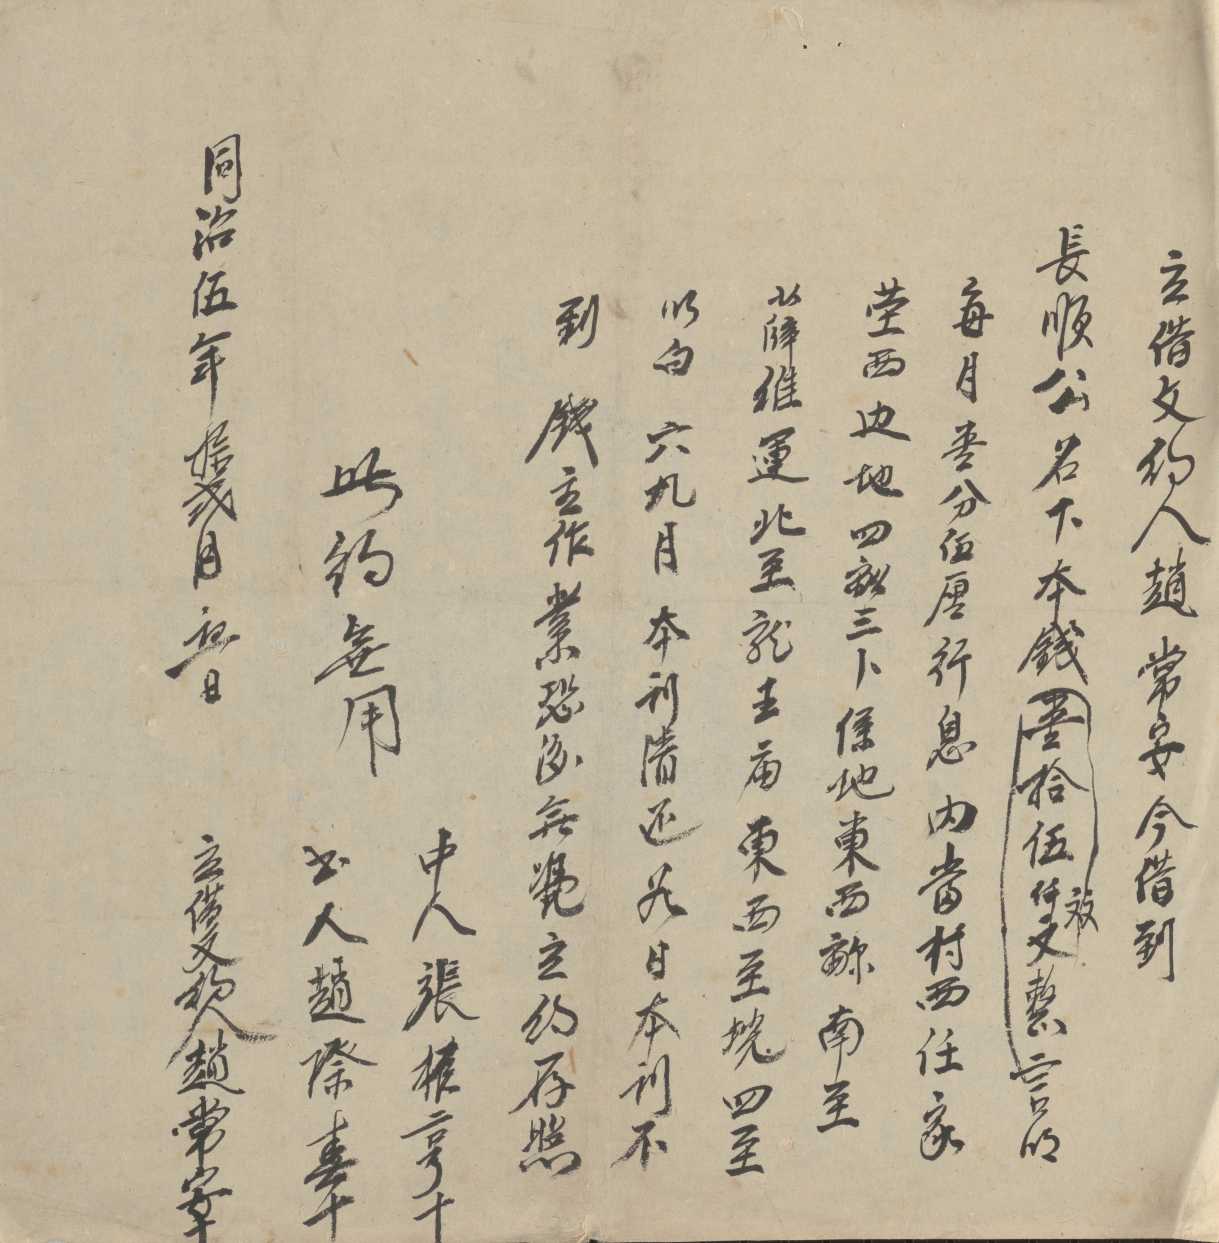 立借文約人趙常安今借到
長順公名下本錢壹拾伍仟文整言明
每月壹分伍厘行息內當村西任家
塋西边地四畝三卜係地東西畛南至
薛維運北至龍王庙東西至堎四至
明白六九月本利清还若日本利不
到錢主作業恐後無凴立約存照
此約無用
中人張權亨十
书人趙際春十
同治伍年拾弍月初日
立借文約人趙常安十